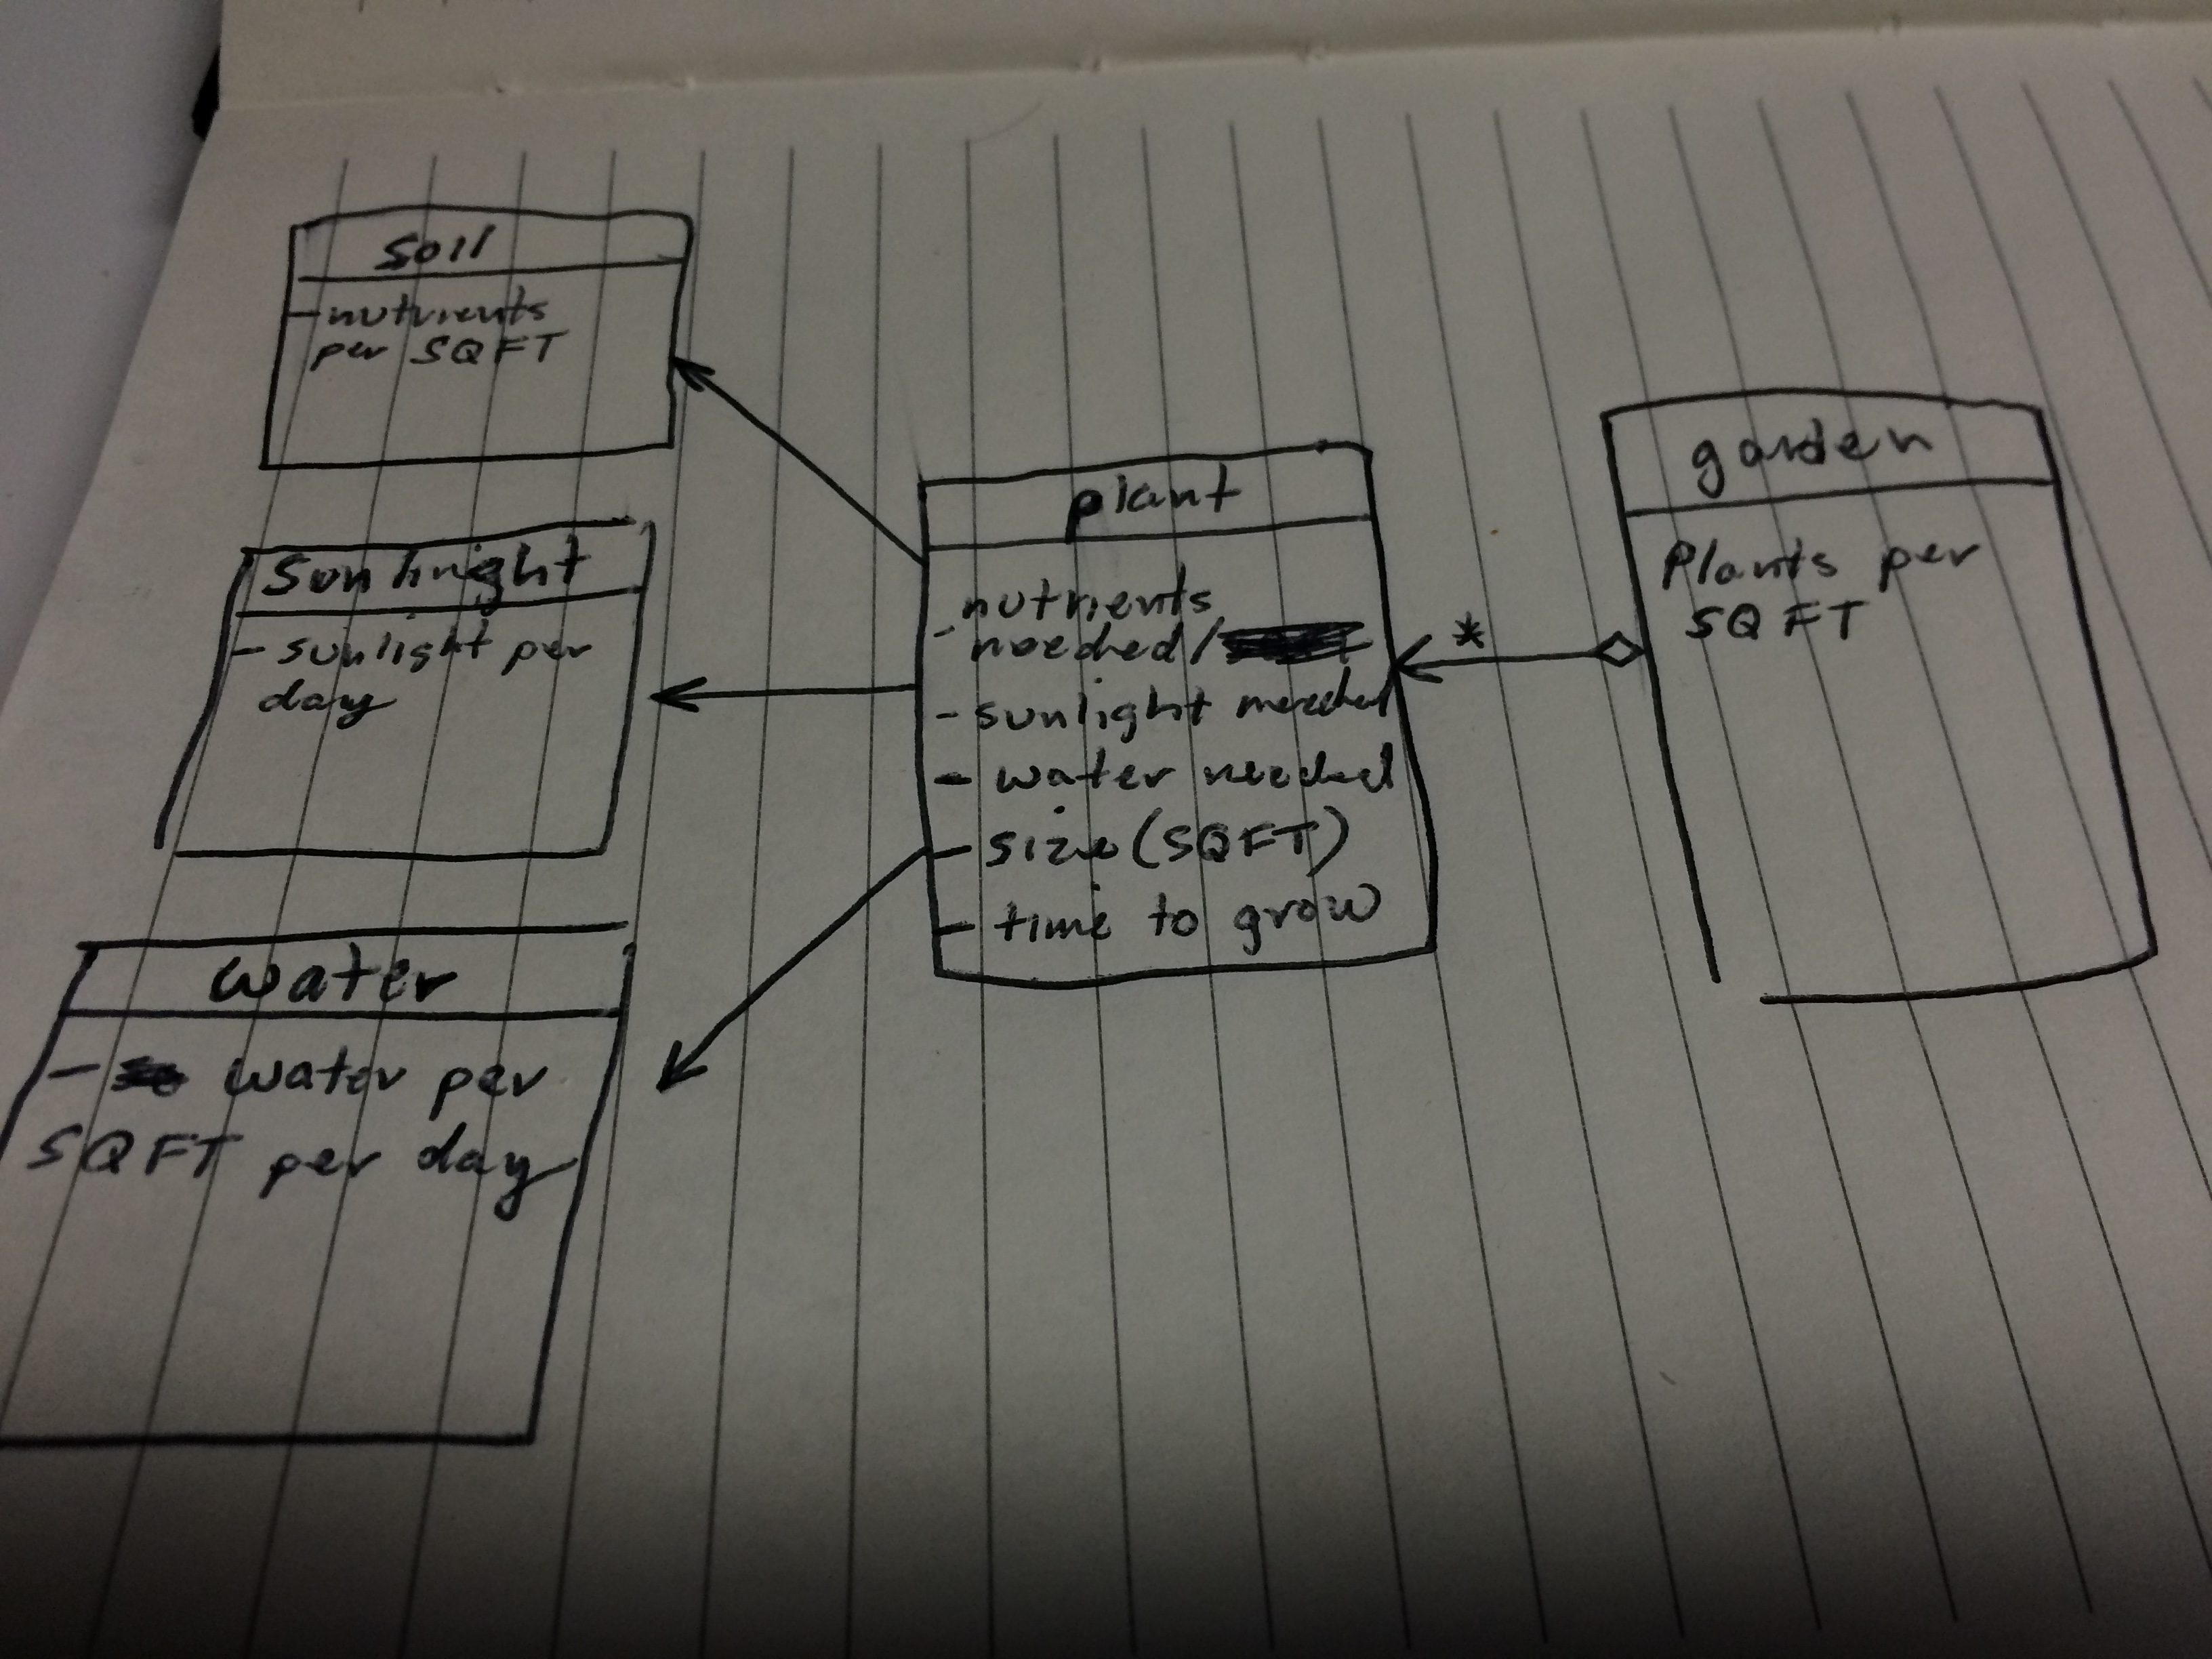 soil
- nutrients
per SQFT
Sunlinght
- sunlight per
day
water
- water per
SQFT per day
plant
- nutrients
needed/
- sunlight needed
- water needed
- size (SQFT)
- time to grow
*
garden
Plants per
SQFT